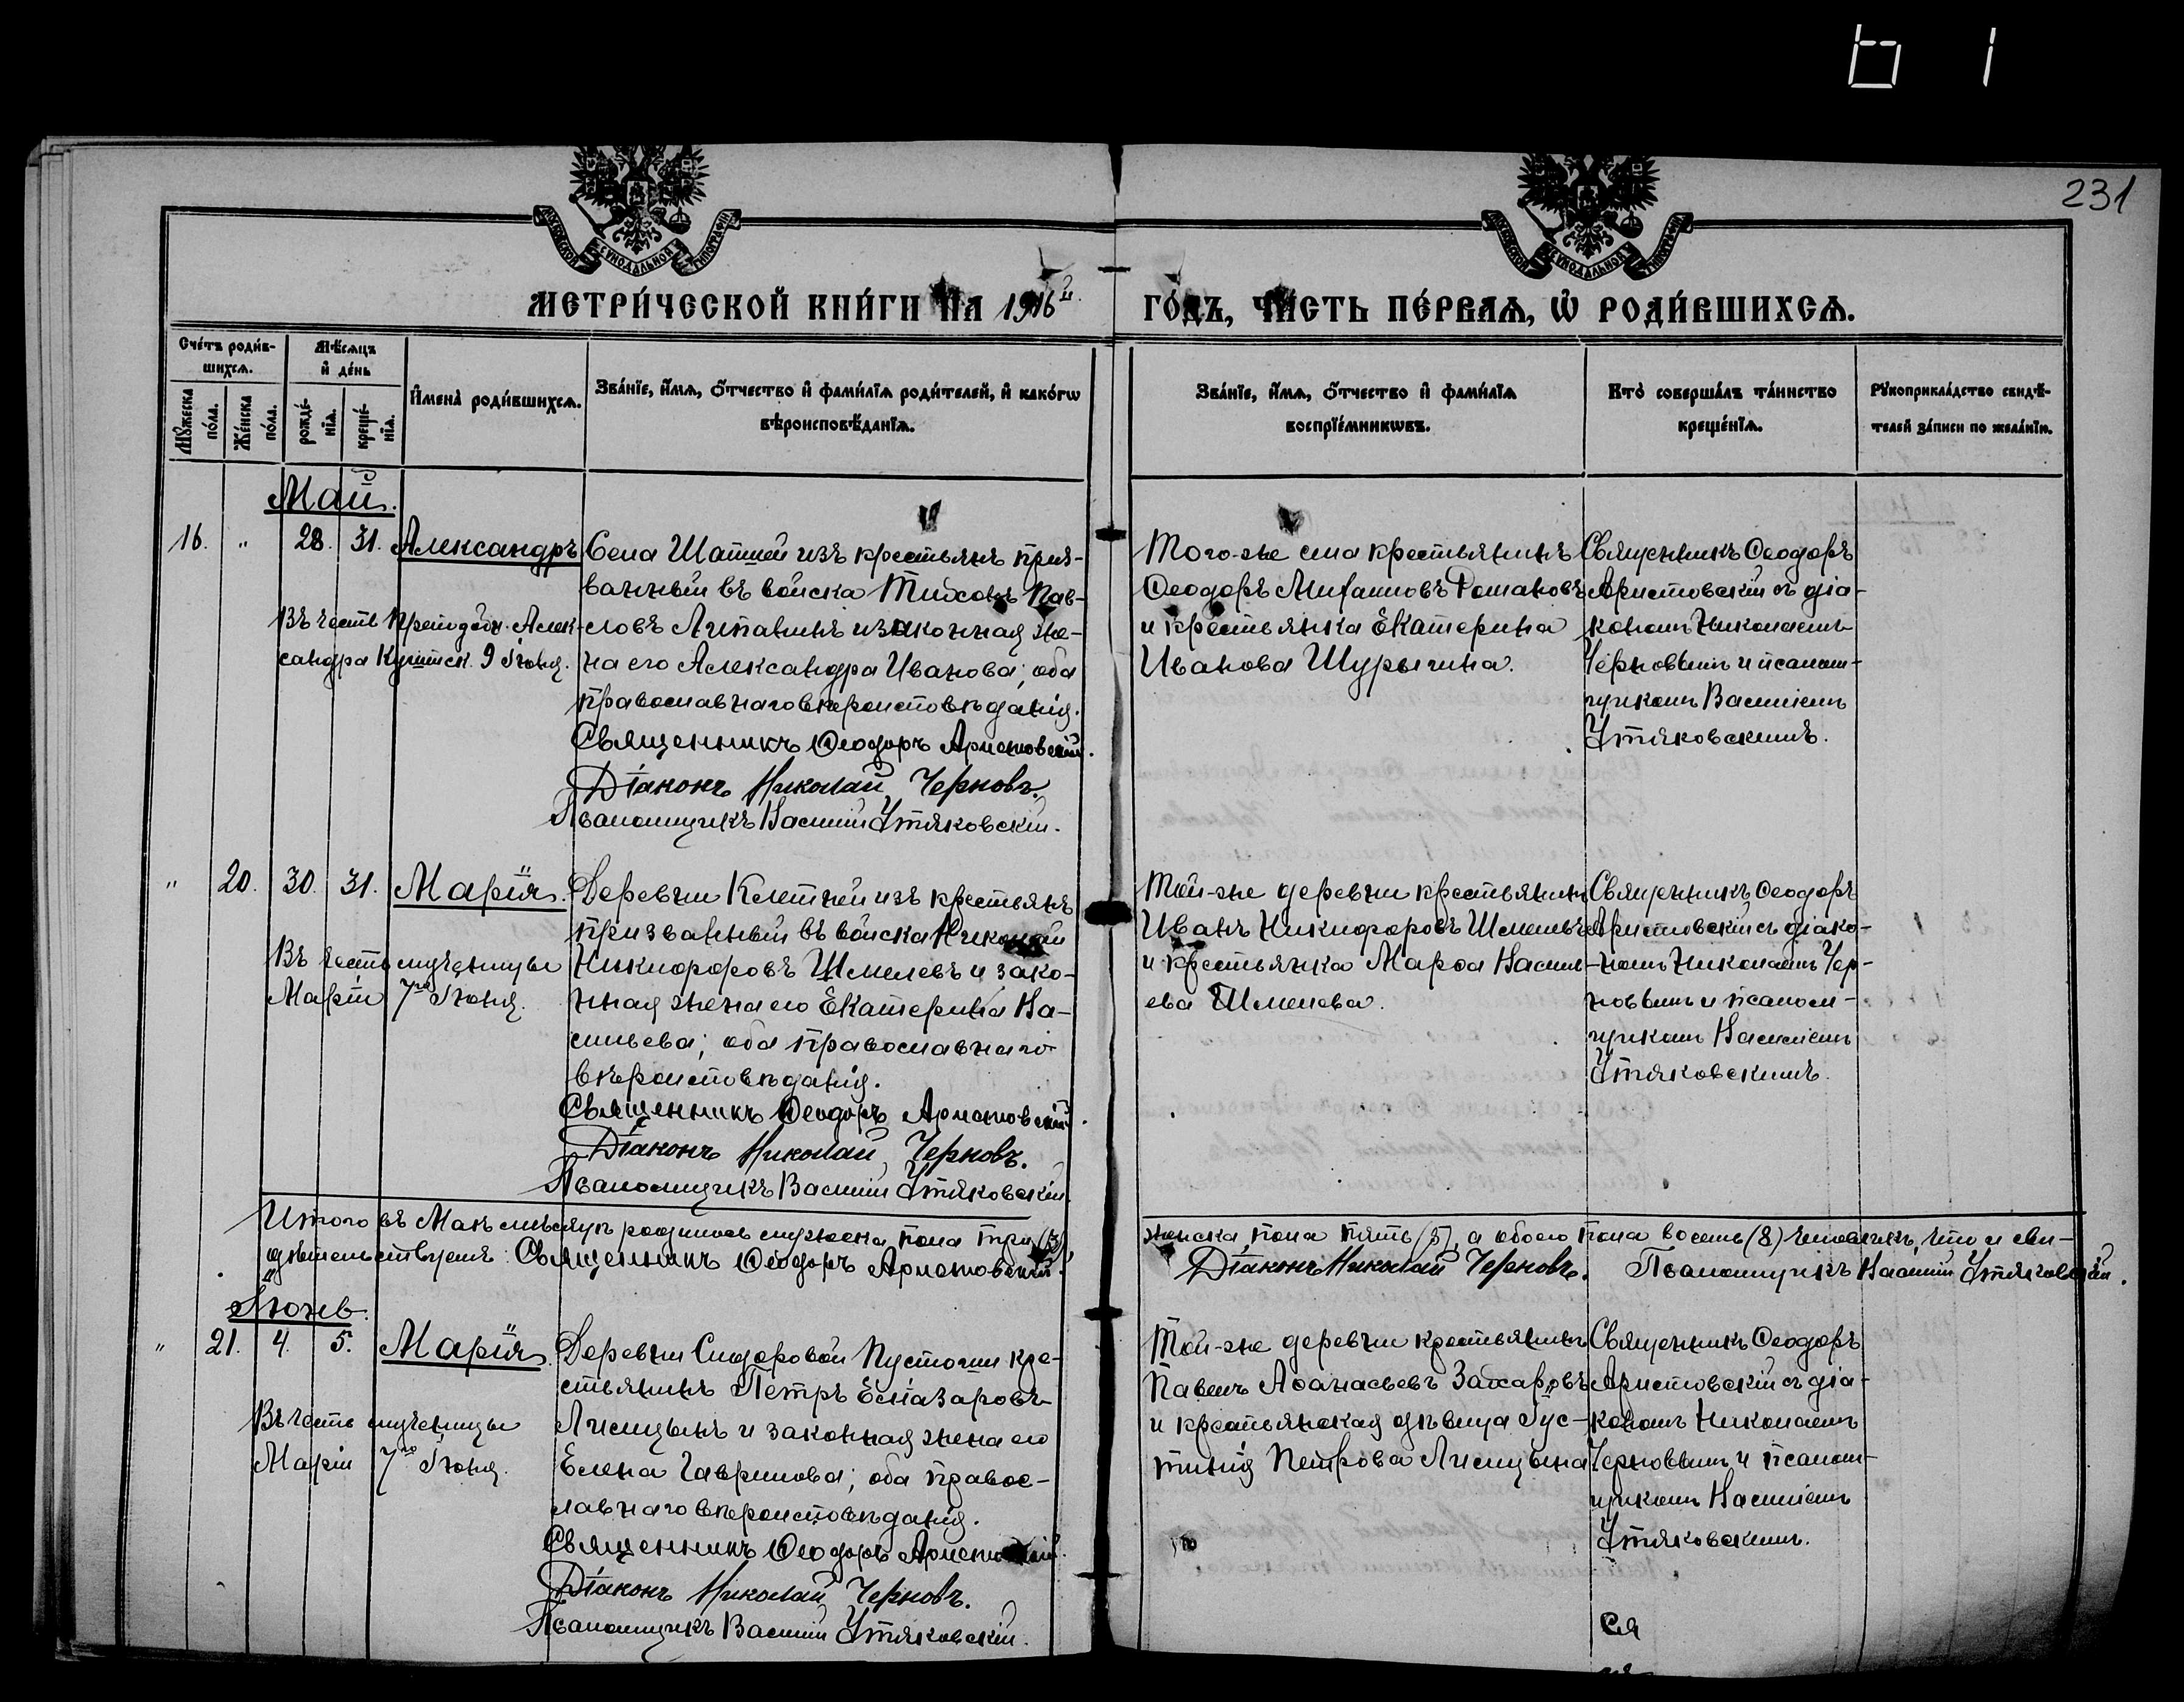 231
МОСКОВСКОЙ СѴНОДАЛЬНОЙ ТИПОГРАФІИ
МОСКОВСКОЙ СѴНОДАЛЬНОЙ ТИПОГРАФІИ
МЕТРИ́ЧЕСКОЙ КНИ́ГИ НА 1916й.
ГО́ДЪ, ЧА́СТЬ ПЕ́РВАѦ, Ѡ҆ РОДИ́ВШИХСѦ.
Сче́тъ роди́в-
шихсѧ.
Мꙋ́жеска по́ла.
Же́нска по́ла.
Мѣ́сѧцъ
и҆ де́нь
рожде́-
нїѧ.
креще́-
нїѧ.
И҆мена̀ роди́вшихсѧ.
Зва́нїе, и҆́мѧ, ѻ҆́тчество и҆ фами́лїѧ роди́телей, и҆ како́гѡ
вѣроисповѣ́данїѧ.
Зва́нїе, и҆́мѧ, ѻ҆́тчество и҆ фами́лїѧ
воспрїе́мникѡвъ.
Кто̀ соверша́лъ та́инство
креще́нїѧ.
Рꙋкоприкла́дство свидѣ́-
телей за́писи по жела́нїю.
Май.
16. " 28. 31. Александръ
Въ честь Преподобн. Алек-
сандра 9 Іюня.
Села Шатней изъ крестьянъ приз-
ванный въ войска Тихонъ Пав-
ловъ Липатинъ и законная же-
на его Александра Иванова; оба
православнаго вѣроисповѣданія.
Священникъ Ѳеодоръ Аристовскій.
Діаконъ Николай Черновъ.
Псаломщикъ Василій Утяковскій.
Того-же села крестьянинъ
Ѳеодоръ Михаиловъ Романовъ
и крестьянка Екатерина
Иванова Шурыгина.
Священникъ Ѳеодоръ
Аристовскій съ діа-
кономъ Николаемъ
Черновымъ и псалом-
щикомъ Василіемъ
Утяковскимъ.
" 20. 30. 31. Марія.
Въ честь мученицы
Маріи 7го Іюня.
Деревни Клетней изъ крестьянъ
призванный въ войска Николай
Никифоровъ Шмелевъ и зако-
нная жена его Екатерина Ва-
сильева; оба православнаго
вѣроисповѣданія.
Священникъ Ѳеодоръ Аристовскій.
Діаконъ Николай Черновъ.
Псаломщикъ Василій Утяковскій.
Той-же деревни крестьянинъ
Иванъ Никифоровъ Шмелевъ
и крестьянка Марѳа Васил-
ева Шмелева.
Священникъ Ѳеодоръ
Аристовскій съ діако-
номъ Николаемъ Чер-
новымъ и псалом-
щикомъ Василіемъ
Утяковскимъ.
Итого въ Маѣ мѣсяцѣ родилось мужеска пола три (3),
женска пола пять (5), а обоего пола восемь (8) человѣкъ, что и сви-
дѣтельствуемъ: Священникъ Ѳеодоръ Аристовскій.
Діаконъ Николай Черновъ. Псаломщикъ Василій Утяковскій.
Іюнь.
" 21. 4. 5. Марія.
Въ честь мученицы
Маріи 7го Іюня.
Деревни Сидоровой Пустоши кре-
стьянинъ Петръ Еліазаровъ
Лисицынъ и законная жена его
Елена Гаврилова; оба правос-
лавнаго вѣроисповѣданія.
Священникъ Ѳеодоръ Аристовскій.
Діаконъ Николай Черновъ.
Псаломщикъ Василій Утяковскій.
Той-же деревни крестьянинъ
Павелъ Аѳанасьевъ Захаровъ
и крестьянская дѣвица Іус-
тинія Петрова Лисицына
Священникъ Ѳеодоръ
Аристовскій съ діа-
кономъ Николаемъ
Черновымъ и псалом-
щикомъ Василіемъ
Утяковскимъ.
Ся